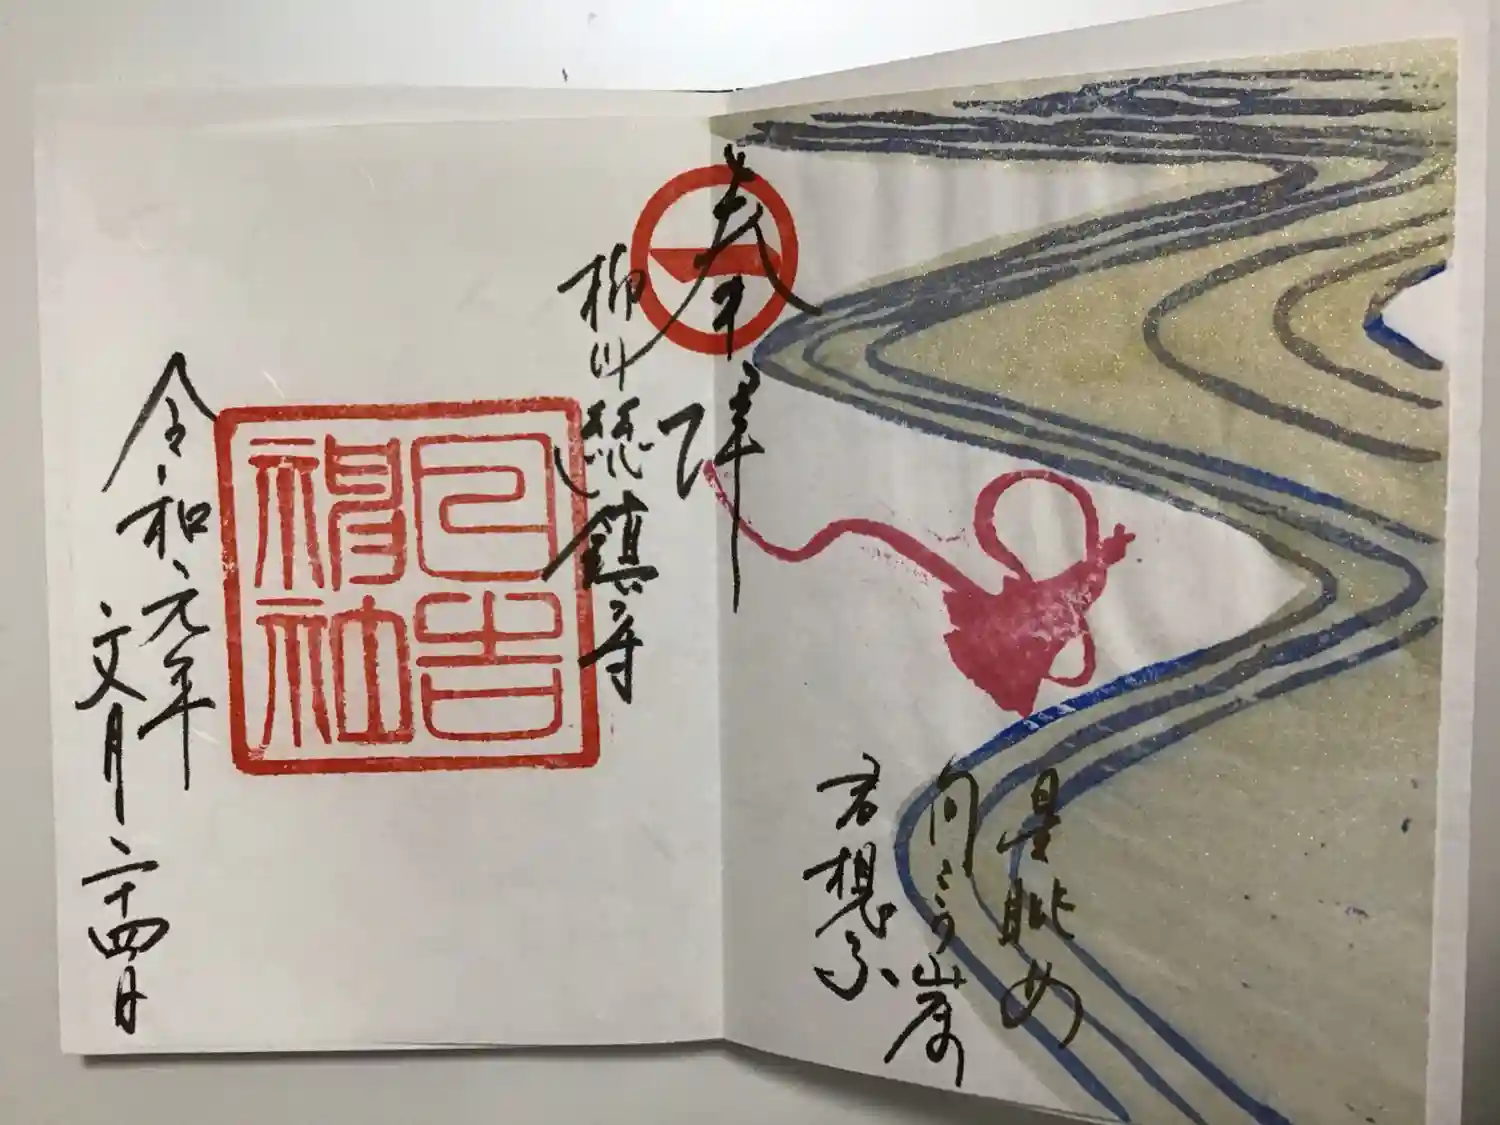 星眺め
向こう岸
君想ふ
奉拝
柳川総鎮守
日吉
神社
令和元年
文月二十四日